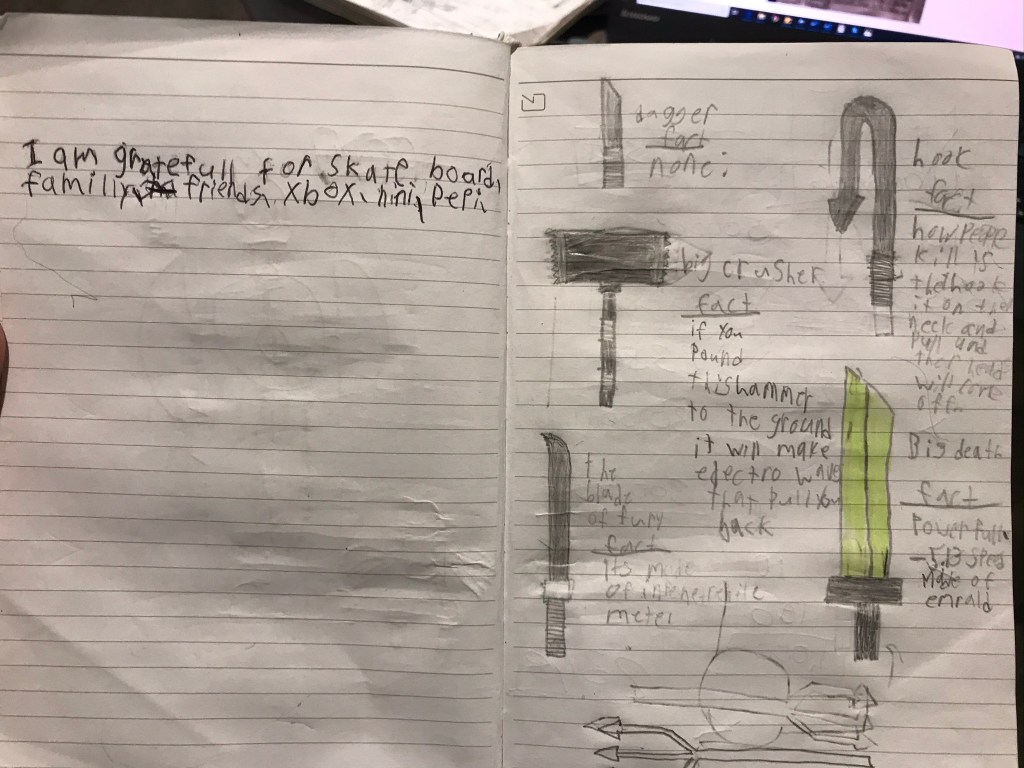 I am gratefull for skate board,
familiy, friends, xbox, nini, pepi,
dagger
fact
none:
big crusher
fact
if you
Pound
this hammer
to the ground
it will make
electro wave
that pull you
back
the
blade
of fury
fact
Its made
of
meter
hook
fact
how
kill is
the hook
it on
neck and
pull and
head
will
off
Big death
fact
Power full
-5.13 speed
Made of
emrald
lenovo